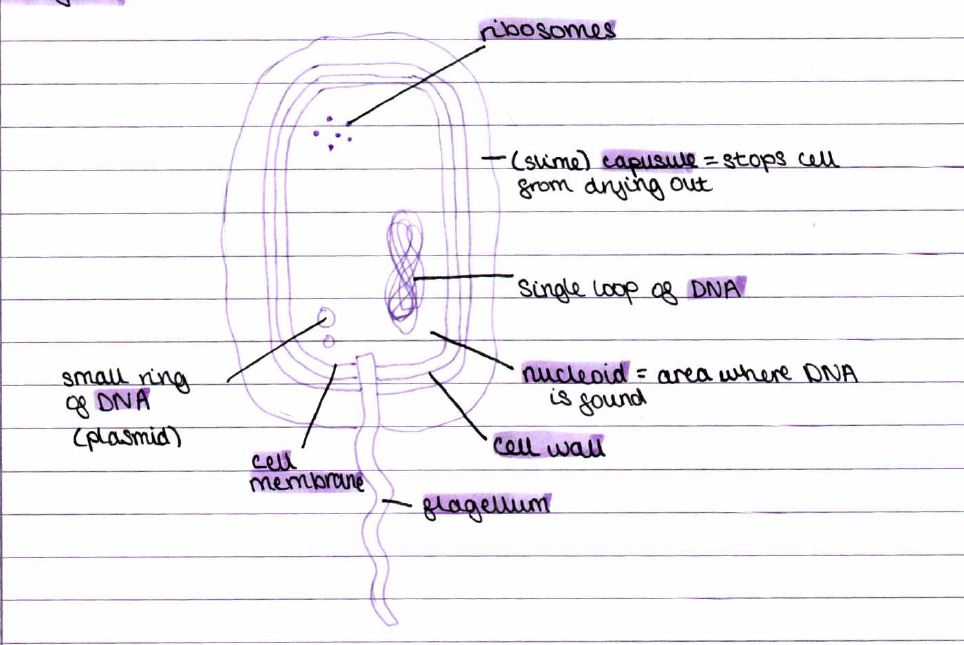 ribosomes
(slime) capusule = stops cell
from drying out
single loop of DNA
small ring
of DNA
(plasmid)
nucleoid = area where DNA
is found
cell wall
cell
membrane
flagellum